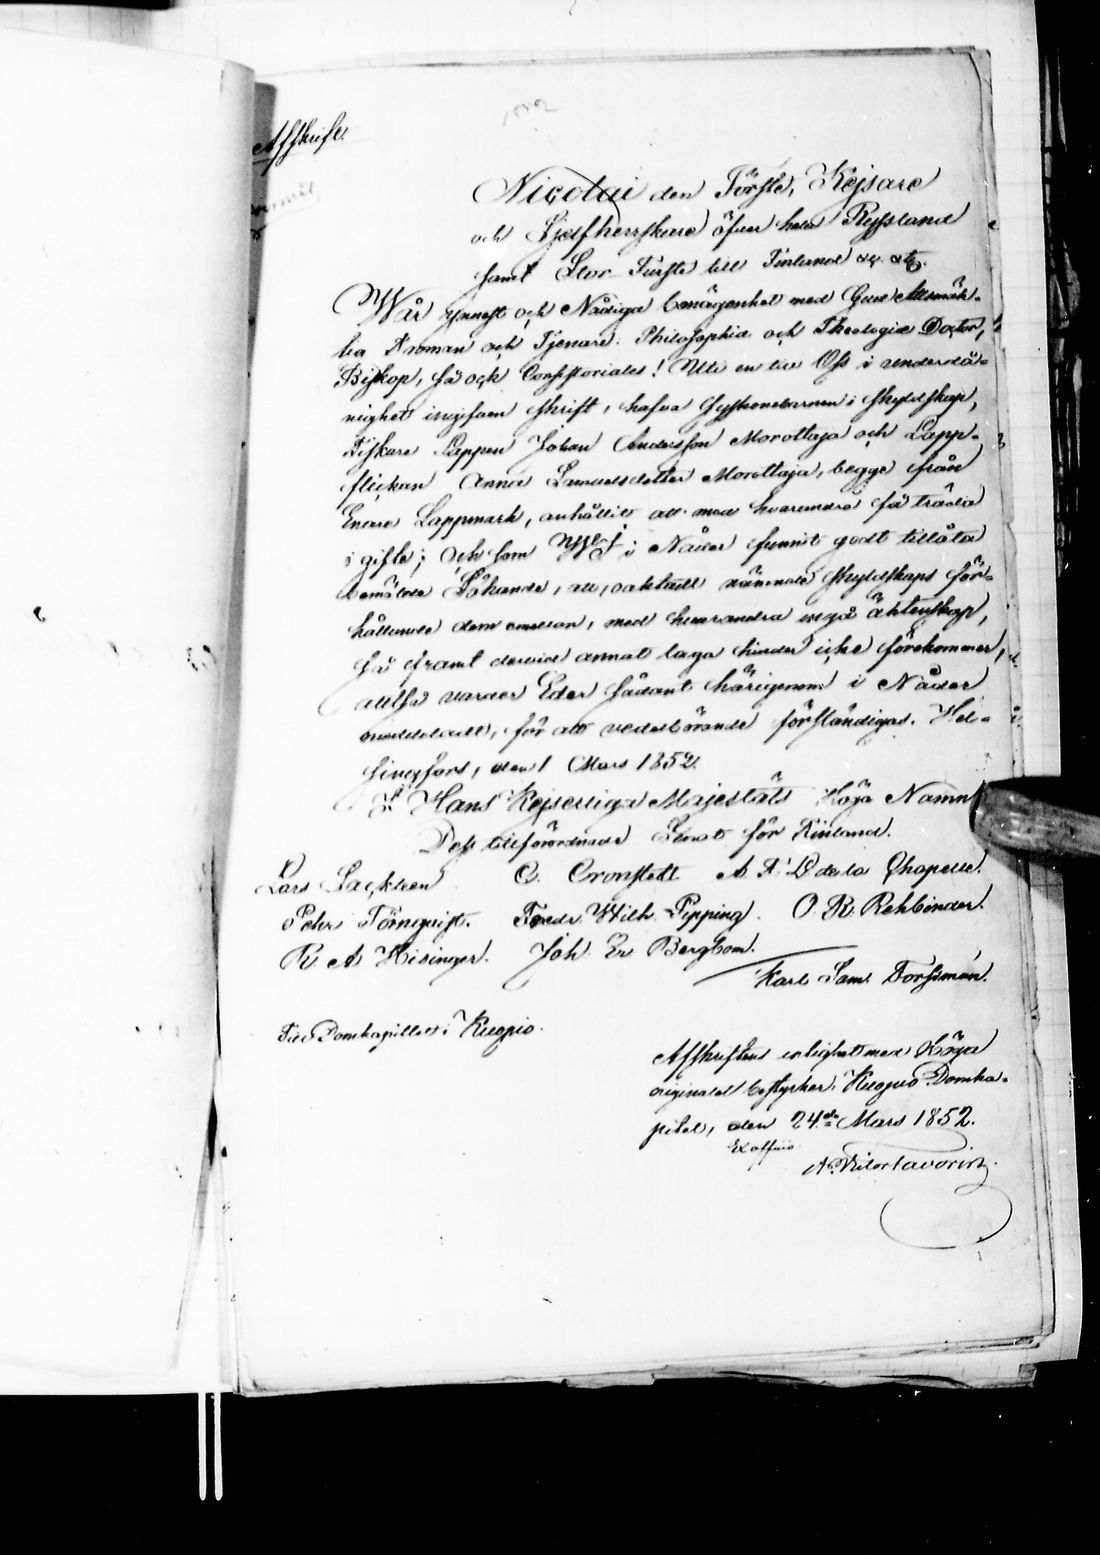 Afskrift.
Nicolai den Förste, Kejsare
och Sjelfherrskare öfver hela Ryssland
samt Stor-Furste till Finland &c. &c.
Wår ynnest och Nådiga benägenhet med Gud Allsmäk-
tig Troman och Tjenare, Philosophiæ och Theologiæ Doctor,
Biskop, så ock Consistoriales! Uti en till Oss i underdå-
nighet ingifven skrift, hafva Syskonebarnen i skyldskap,
Fiskare Lappen Johan Andersson Morottaja och Lapp-
flickan Anna Samuelsdotter Morottaja, begge från
Enare Lappmark, anhållit att med hvarandra få träda
i gifte; och som WJ i Nåder funnit godt tillåta
bemälde Sökande, att, oaktadt nämnde skyldskaps för-
hållande dem emellan, med hvarandra ingå äktenskap,
så framt dervid annat laga hinder icke förekommer,
alltså varder Eder sådant härigenom i Nåder
meddeladt, för att vederbörande förständigas. Hel-
singfors, den 1 Mars 1852.
I Hans Kejserliga Majestäts Höga Namn
Dess tillförordnade Senat för Finland.
Lars Sackleen. C. Cronstedt. A. F. D de la Chapelle.
Pehr Törnqvist. Fredr. Wilh. Pipping. O. R. Rehbinder.
R. A. Hisinger. Joh. Er. Bergbom.
Karl Sam. Forssman.
Till Domkapitlet i Kuopio.
Afskriftens enlighet med Höga
originalet bestyrker. Kuopio Domka-
pitel, den 24de Mars 1852.
Ex officio